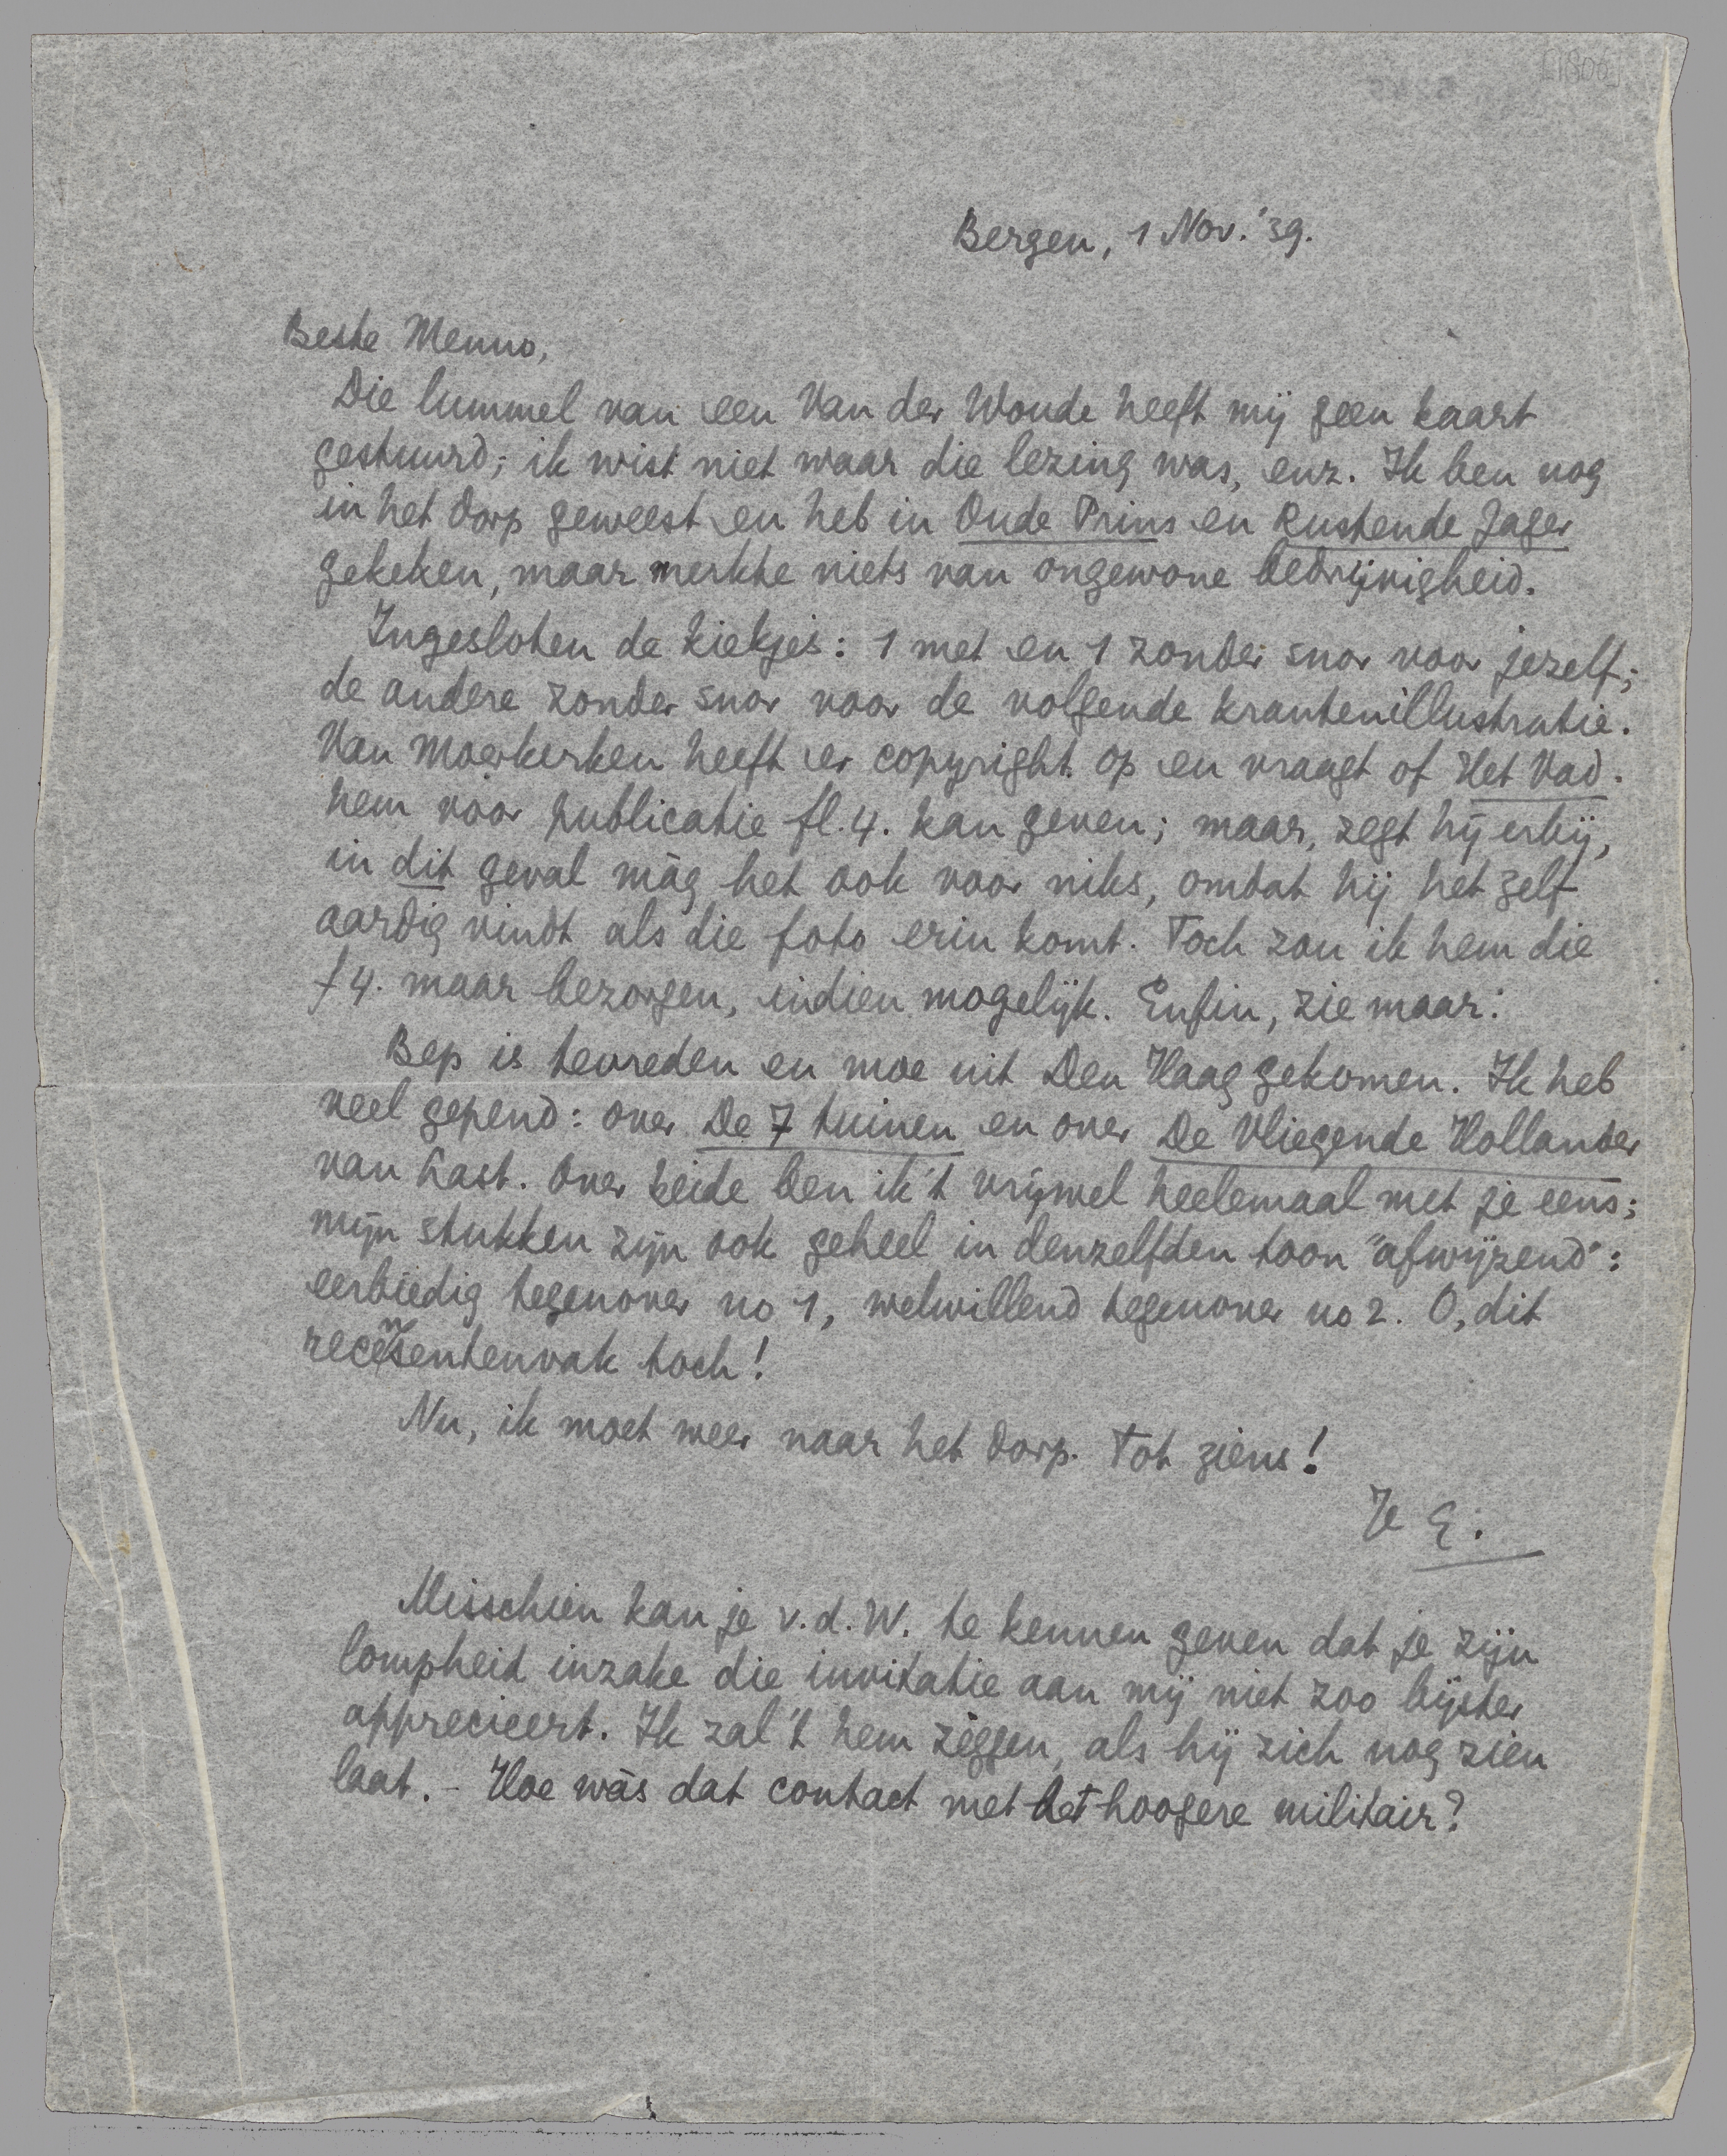 Bergen, 1 Nov. '39.
Beste Menno,
Die lummel van een Van der Woude heeft mij geen kaart
gestuurd; ik wist niet waar die lezing was, enz. Ik ben nog
in het dorp geweest en heb in Oude Prins en Rustende Jager
gekeken, maar merkte niets van ongewone bedrijvigheid.
Ingesloten de kiekjes: 1 met en 1 zonder snor voor jezelf;
de andere zonder snor voor de volgende krantenillustratie.
Van Moerkerken heeft er copyright op en vraagt of Het Vad.
hem vóór publicatie fl. 4. kan geven; maar, zegt hij erbij,
in dit geval màg het ook voor niks, omdat hij het zelf
aardig vindt als die foto erin komt. Toch zou ik hem die
f 4. maar bezorgen, indien mogelijk. Enfin, zie maar.
Bep is tevreden en moe uit Den Haag gekomen. Ik heb
veel gepend: over De 7 tuinen en over De Vliegende Hollander
van Last. Over beide ben ik 't vrijwel heelemaal met je eens;
mijn stukken zijn ook geheel in denzelfden toon "afwijzend":
eerbiedig tegenover no 1, welwillend tegenover no 2. O, dit
recensentenvak toch!
Nu, ik moet weer naar het dorp. Tot ziens!
Je E.
Misschien kan je v.d.W. te kennen geven dat je zijn
lompheid inzake die invitatie aan mij niet zoo bijster
apprecieert. Ik zal 't hem zèggen, als hij zich nog zien
laat. – Hoe wàs dat contact met het hoogere militair?